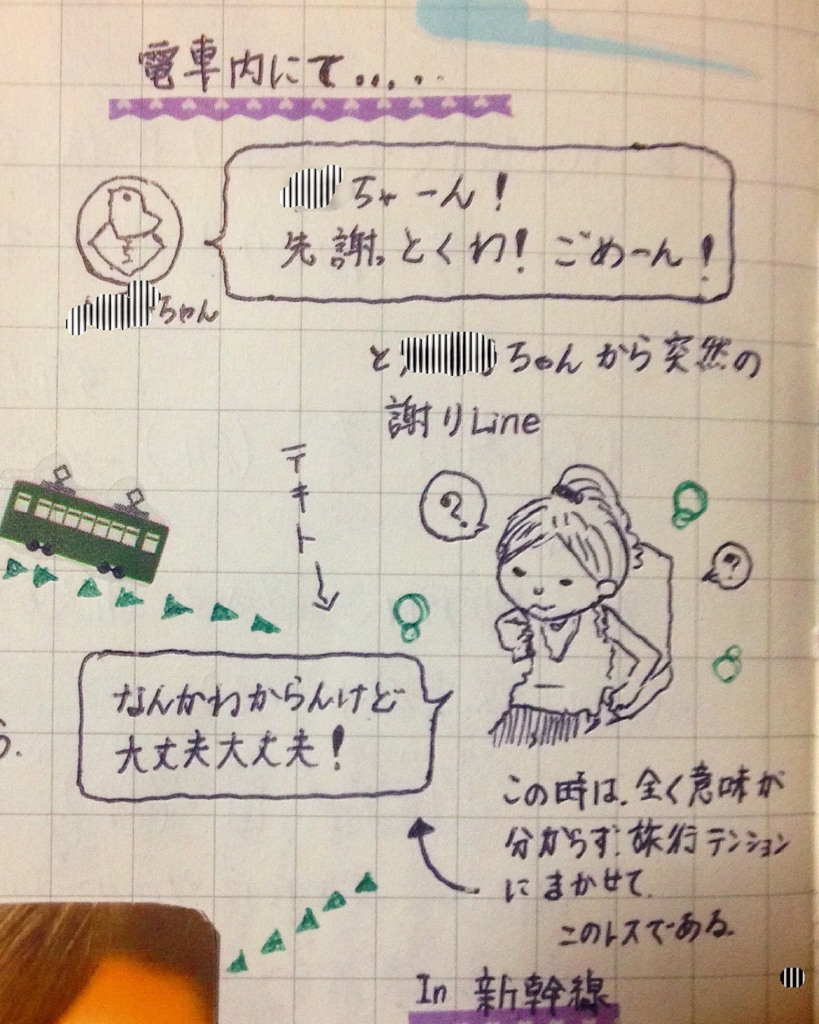 電車内にて.....
ちゃーん！
先謝っとくわ！ごめーん！
ちゃん
と ちゃんから突然の
謝りLine
テキトー
?
?
なんかわからんけど
大丈夫大丈夫！
う.
この時は、全く意味が
分からず、旅行テンション
にまかせて、
このレスである。
In 新幹線